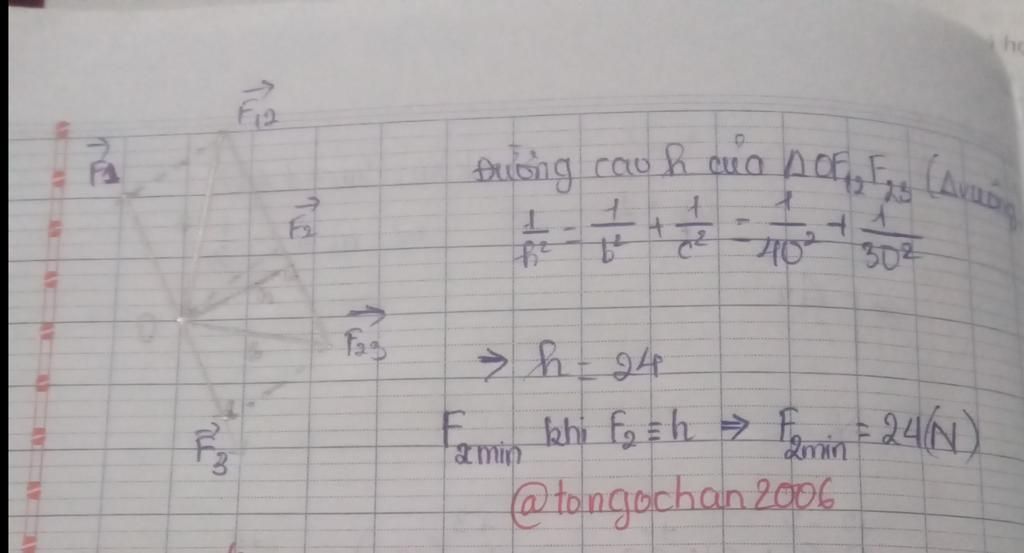 F₁₂
F₁
F₂
O
h
F₂₃
F₃
Đường cao h của ΔOF₁₂F₂₃ (Δvuông
1/h² = 1/b² + 1/c² = 1/40² + 1/30²
⇒ h = 24
F₂min khi F₂ ≡ h ⇒ F₂min = 24(N)
@tongochan2006